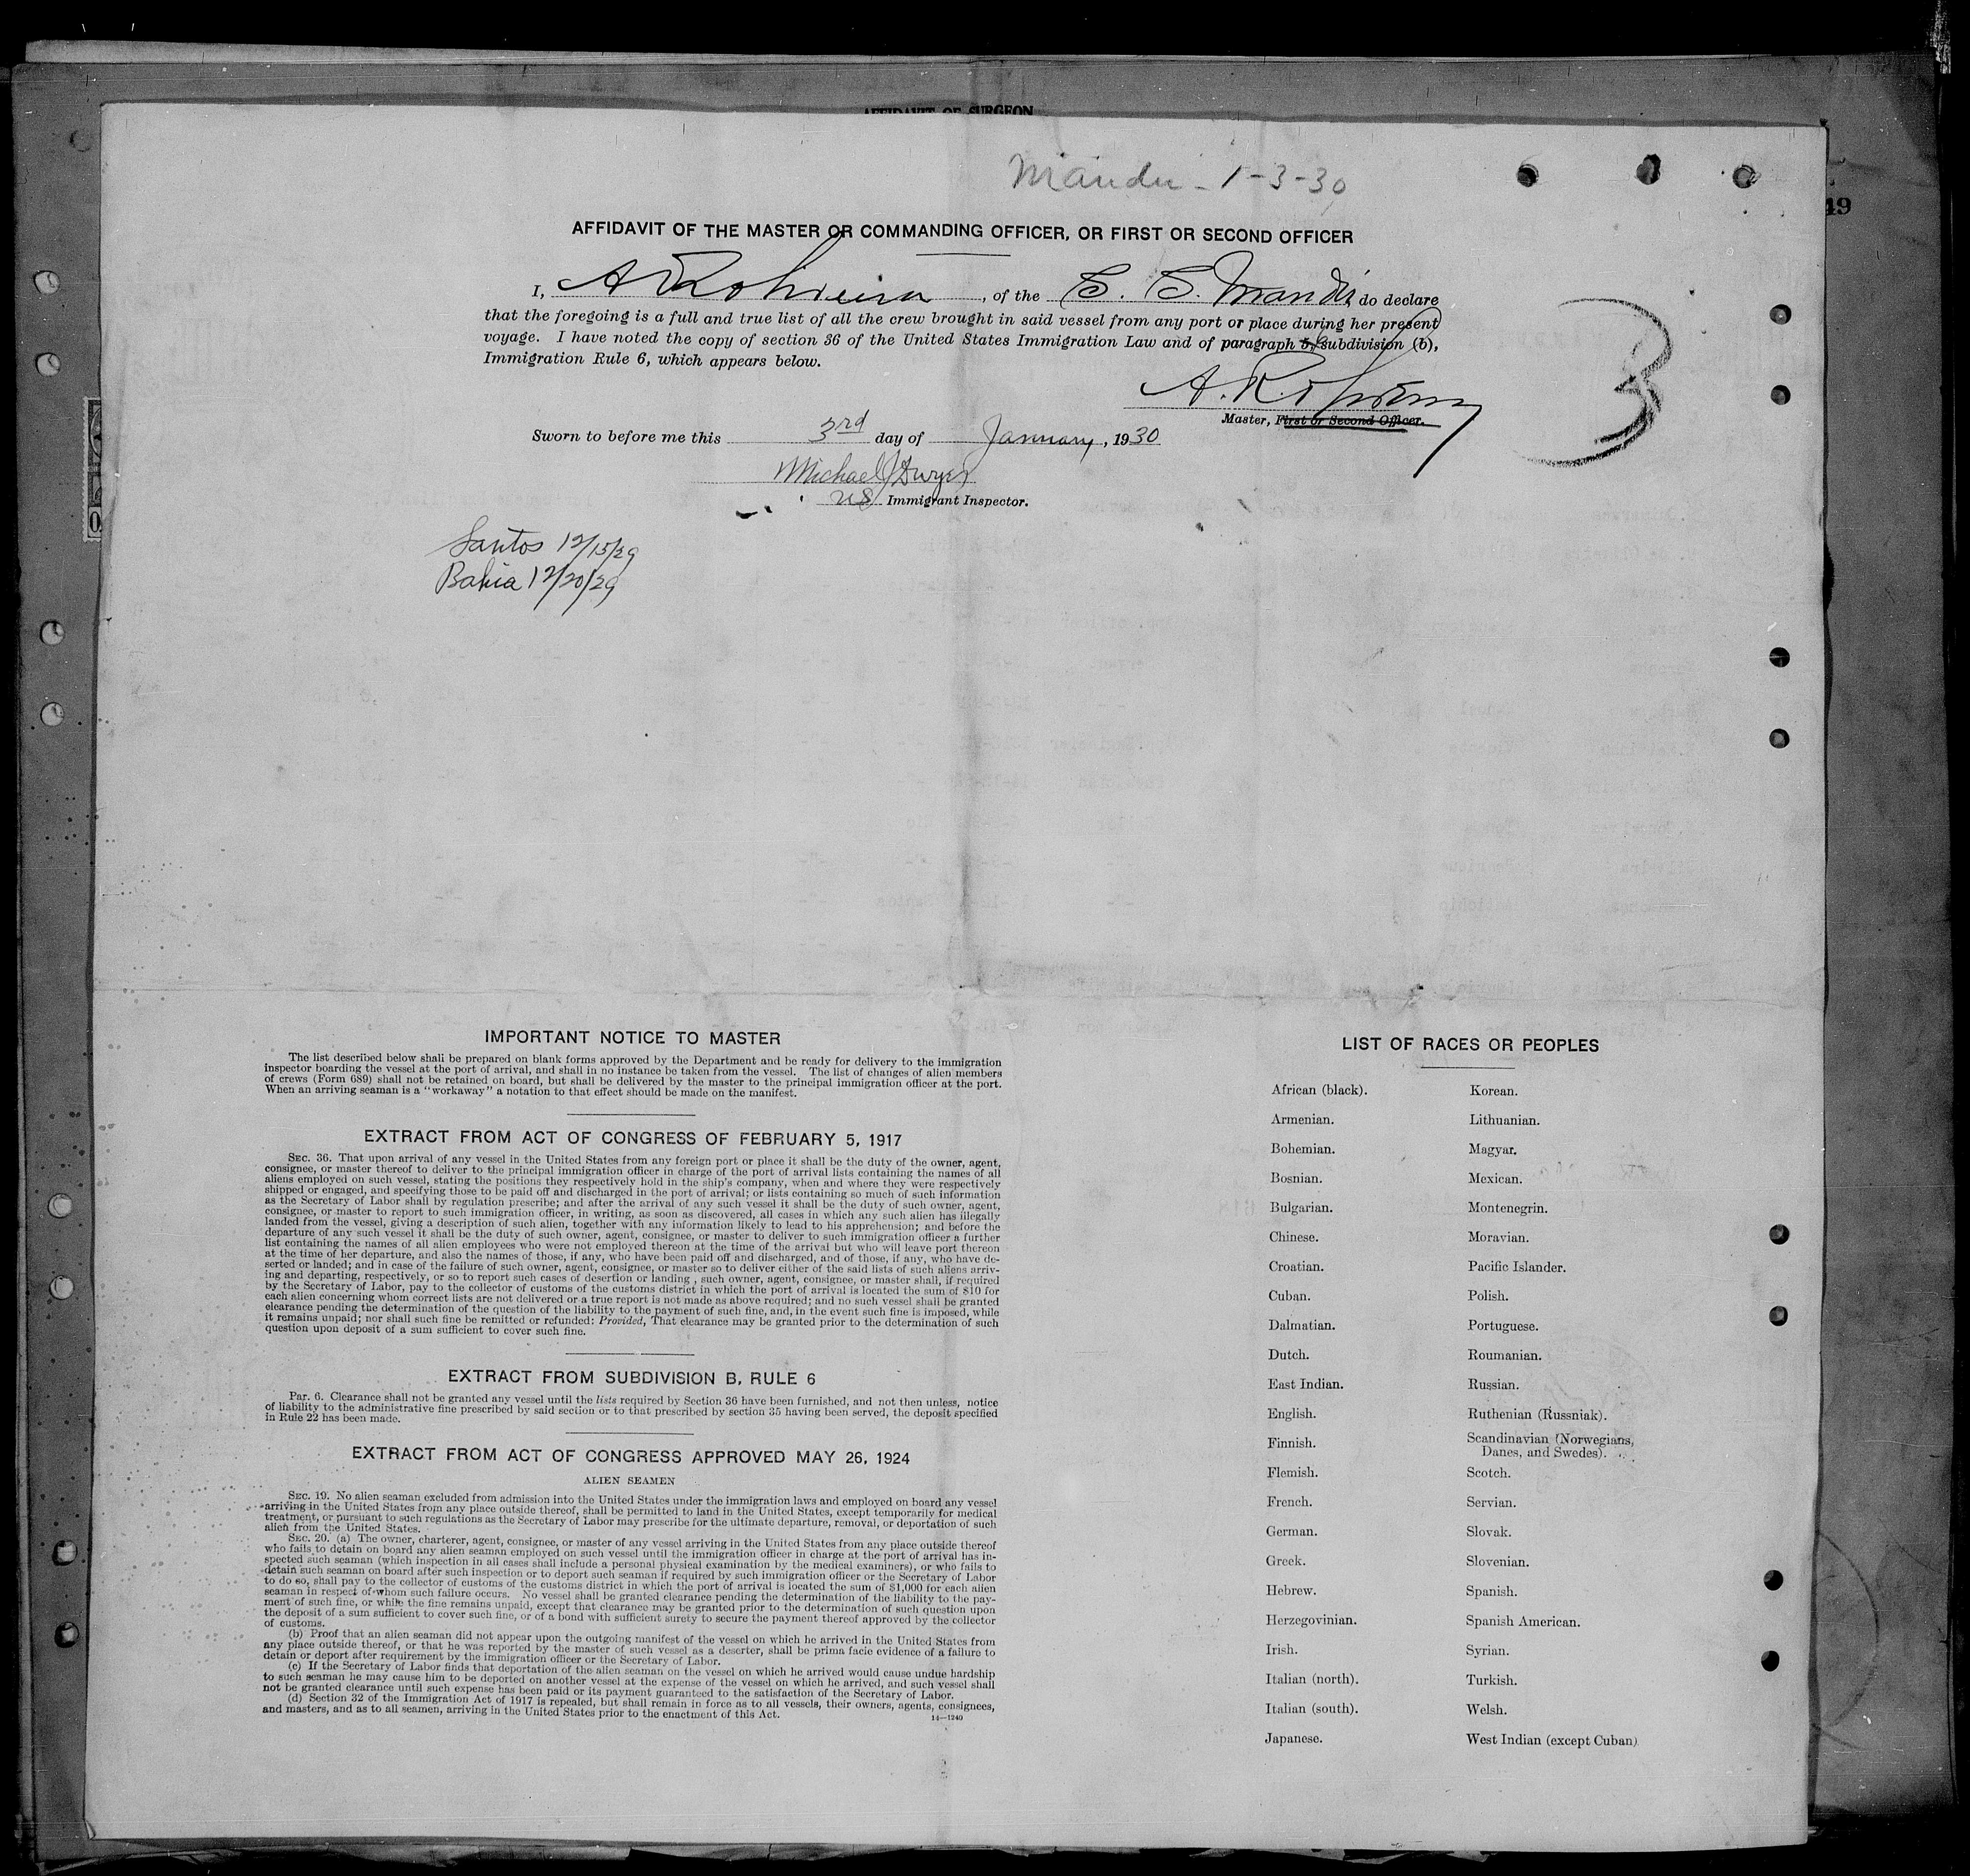 AFFIDAVIT OF SURGEON
Mandu - 1-3-30
49
AFFIDAVIT OF THE MASTER OR COMMANDING OFFICER, OR FIRST OR SECOND OFFICER
I, A , of the S. S. Mandu, do declare
that the foregoing is a full and true list of all the crew brought in said vessel from any port or place during her present
voyage. I have noted the copy of section 36 of the United States Immigration Law and of paragraph 5, subdivision (b),
Immigration Rule 6, which appears below.
3
A. R.
Master, First or Second Officer.
Sworn to before me this 3rd day of January, 1930
Michael J Dwyer
US Immigrant Inspector.
Santos 12/15/29
Bahia 12/20/29
IMPORTANT NOTICE TO MASTER
The list described below shall be prepared on blank forms approved by the Department and be ready for delivery to the immigration
inspector boarding the vessel at the port of arrival, and shall in no instance be taken from the vessel. The list of changes of alien members
of crews (Form 689) shall not be retained on board, but shall be delivered by the master to the principal immigration officer at the port.
When an arriving seaman is a "workaway" a notation to that effect should be made on the manifest.
EXTRACT FROM ACT OF CONGRESS OF FEBRUARY 5, 1917
SEC. 36. That upon arrival of any vessel in the United States from any foreign port or place it shall be the duty of the owner, agent,
consignee, or master thereof to deliver to the principal immigration officer in charge of the port of arrival lists containing the names of all
aliens employed on such vessel, stating the positions they respectively hold in the ship's company, when and where they were respectively
shipped or engaged, and specifying those to be paid off and discharged in the port of arrival; or lists containing so much of such information
as the Secretary of Labor shall by regulation prescribe; and after the arrival of any such vessel it shall be the duty of such owner, agent,
consignee, or master to report to such immigration officer, in writing, as soon as discovered, all cases in which any such alien has illegally
landed from the vessel, giving a description of such alien, together with any information likely to lead to his apprehension; and before the
departure of any such vessel it shall be the duty of such owner, agent, consignee, or master to deliver to such immigration officer a further
list containing the names of all alien employees who were not employed thereon at the time of the arrival but who will leave port thereon
at the time of her departure, and also the names of those, if any, who have been paid off and discharged, and of those, if any, who have de-
serted or landed; and in case of the failure of such owner, agent, consignee, or master so to deliver either of the said lists of such aliens arriv-
ing and departing, respectively, or so to report such cases of desertion or landing , such owner, agent, consignee, or master shall, if required
by the Secretary of Labor, pay to the collector of customs of the customs district in which the port of arrival is located the sum of $10 for
each alien concerning whom correct lists are not delivered or a true report is not made as above required; and no such vessel shall be granted
clearance pending the determination of the question of the liability to the payment of such fine, and, in the event such fine is imposed, while
it remains unpaid; nor shall such fine be remitted or refunded: Provided, That clearance may be granted prior to the determination of such
question upon deposit of a sum sufficient to cover such fine.
EXTRACT FROM SUBDIVISION B, RULE 6
Par. 6. Clearance shall not be granted any vessel until the lists required by Section 36 have been furnished, and not then unless, notice
of liability to the administrative fine prescribed by said section or to that prescribed by section 35 having been served, the deposit specified
in Rule 22 has been made.
EXTRACT FROM ACT OF CONGRESS APPROVED MAY 26, 1924
ALIEN SEAMEN
SEC. 19. No alien seaman excluded from admission into the United States under the immigration laws and employed on board any vessel
arriving in the United States from any place outside thereof, shall be permitted to land in the United States, except temporarily for medical
treatment, or pursuant to such regulations as the Secretary of Labor may prescribe for the ultimate departure, removal, or deportation of such
alien from the United States.
SEC. 20. (a) The owner, charterer, agent, consignee, or master of any vessel arriving in the United States from any place outside thereof
who fails to detain on board any alien seaman employed on such vessel until the immigration officer in charge at the port of arrival has in-
spected such seaman (which inspection in all cases shall include a personal physical examination by the medical examiners), or who fails to
detain such seaman on board after such inspection or to deport such seaman if required by such immigration officer or the Secretary of Labor
to do so, shall pay to the collector of customs of the customs district in which the port of arrival is located the sum of $1,000 for each alien
seaman in respect of whom such failure occurs. No vessel shall be granted clearance pending the determination of the liability to the pay-
ment of such fine, or while the fine remains unpaid, except that clearance may be granted prior to the determination of such question upon
the deposit of a sum sufficient to cover such fine, or of a bond with sufficient surety to secure the payment thereof approved by the collector
of customs.
(b) Proof that an alien seaman did not appear upon the outgoing manifest of the vessel on which he arrived in the United States from
any place outside thereof, or that he was reported by the master of such vessel as a deserter, shall be prima facie evidence of a failure to
detain or deport after requirement by the immigration officer or the Secretary of Labor.
(c) If the Secretary of Labor finds that deportation of the alien seaman on the vessel on which he arrived would cause undue hardship
to such seaman he may cause him to be deported on another vessel at the expense of the vessel on which he arrived, and such vessel shall
not be granted clearance until such expense has been paid or its payment guaranteed to the satisfaction of the Secretary of Labor.
(d) Section 32 of the Immigration Act of 1917 is repealed, but shall remain in force as to all vessels, their owners, agents, consignees,
and masters, and as to all seamen, arriving in the United States prior to the enactment of this Act.
14—1240
LIST OF RACES OR PEOPLES
African (black).
Armenian.
Bohemian.
Bosnian.
Bulgarian.
Chinese.
Croatian.
Cuban.
Dalmatian.
Dutch.
East Indian.
English.
Finnish.
Flemish.
French.
German.
Greek.
Hebrew.
Herzegovinian.
Irish.
Italian (north).
Italian (south).
Japanese.
Korean.
Lithuanian.
Magyar.
Mexican.
Montenegrin.
Moravian.
Pacific Islander.
Polish.
Portuguese.
Roumanian.
Russian.
Ruthenian (Russniak).
Scandinavian (Norwegians,
Danes, and Swedes).
Scotch.
Servian.
Slovak.
Slovenian.
Spanish.
Spanish American.
Syrian.
Turkish.
Welsh.
West Indian (except Cuban)